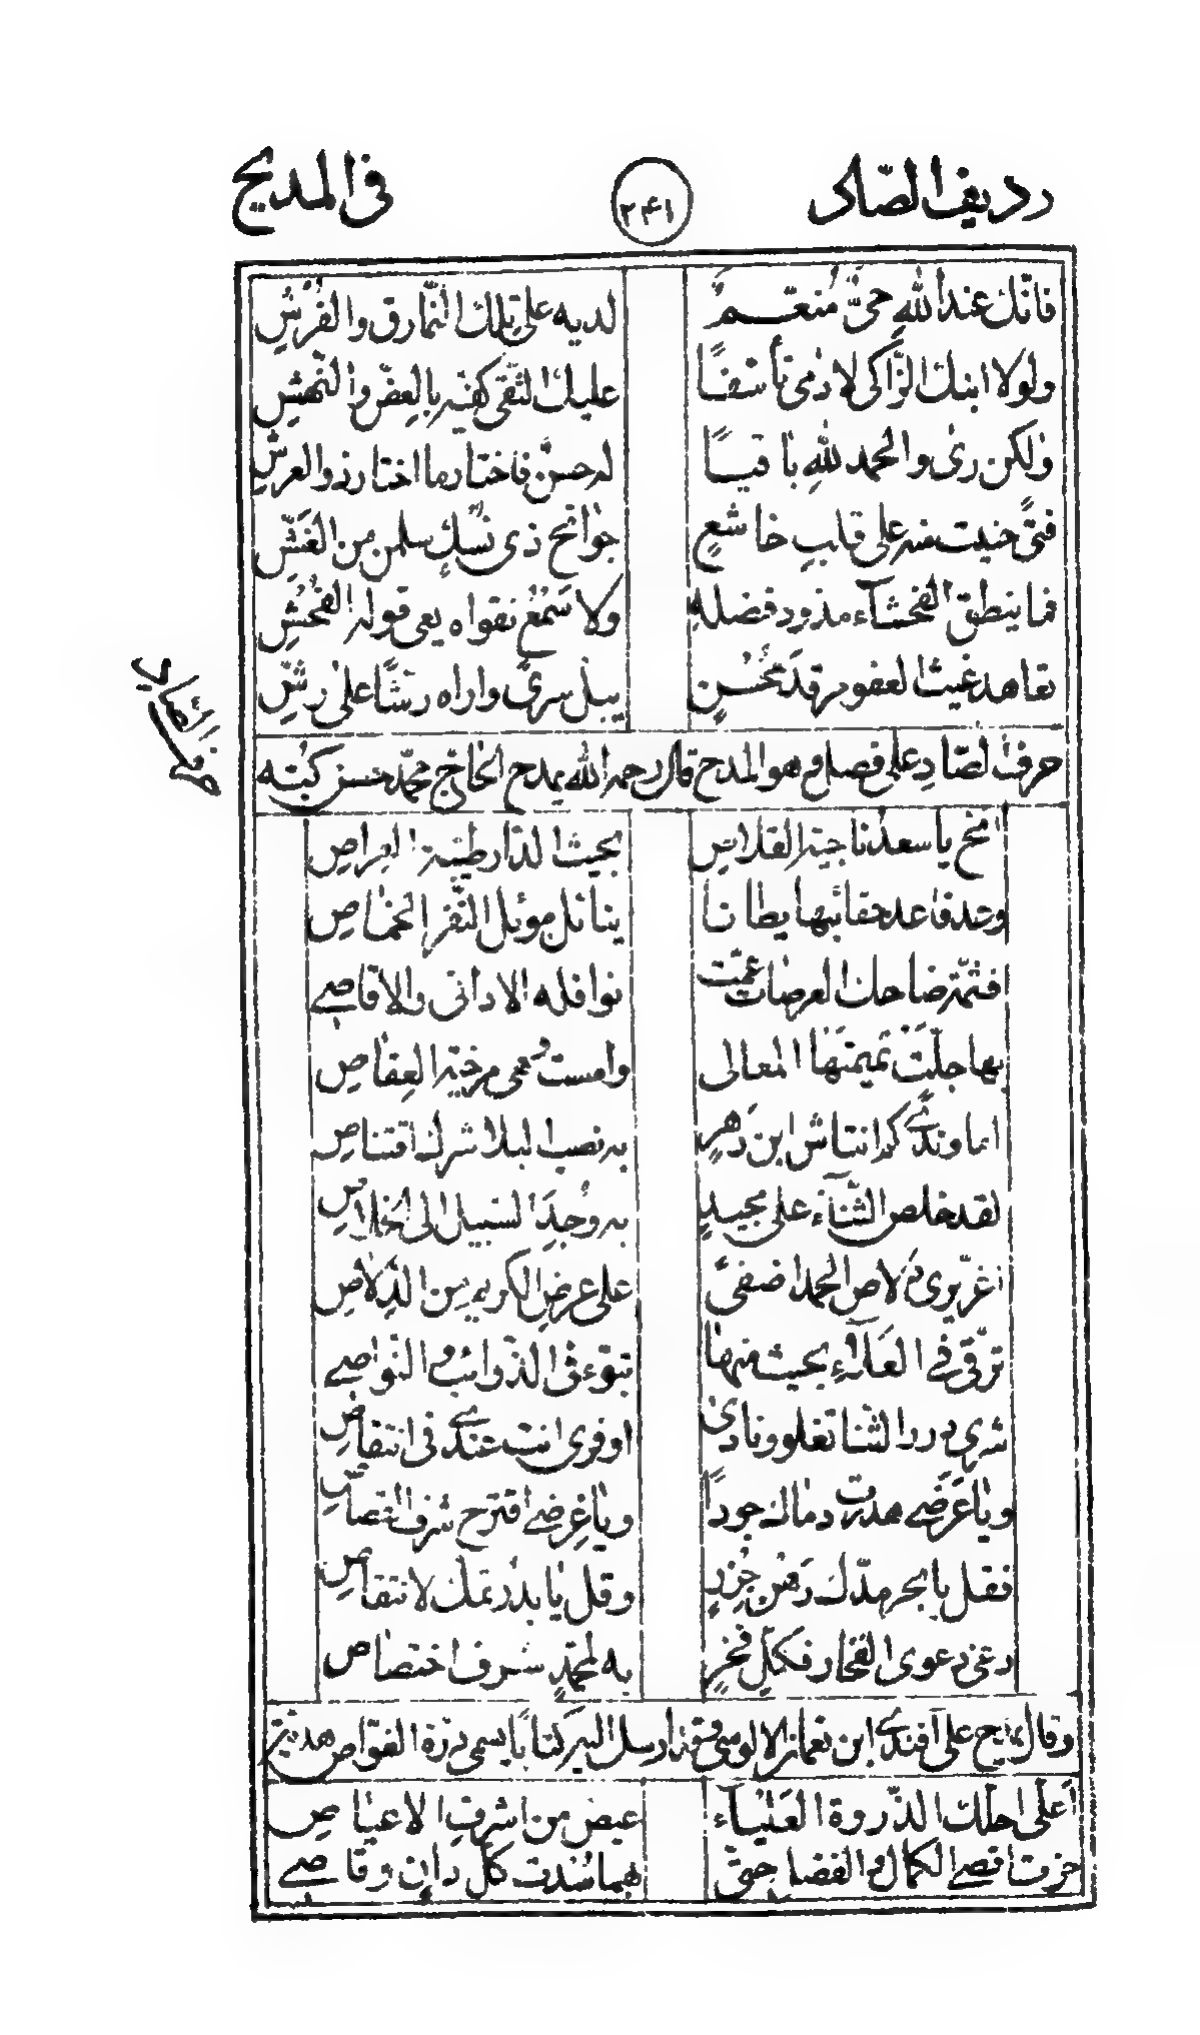 رديف الصاد ٢٤١ في المديح
فانّك عند اللهِ حيٌّ مُنعّمٌ لديه على تلك النّمارق والفُرُشِ
ولولا ابنك الزّاكي لادمى تأسّفًا عليك التقى كفّيه بالعضّ والنّهشِ
ولكن رى والحمد للهِ باقيًا له حسنٌ فاختار ما اختار ذو العرشِ
فتىً حنيت منه على قلبٍ خاشعٍ جوانح ذي نُسكٍ سلمن من الغَشِّ
فما ينطق الفحشآء مذود فضلهِ ولا سَمْعُ تقواه يعى قوله الفُحْشِ
تعاهد غيث العفو مرقد مُحْسنٍ يبلّ سرىً واراه رشًّا على رشِّ
حرف الصّاد على فصل في هو المدح قال رحمه الله يمدح الحاج محمّد حسن كبّه
انخ يا سعد ناجية القلاصِ بحيث الدّار طيّبة العراصِ
وعد فاعد حقائبها بطانا بنائل موئل النّفر الخماصِ
فثمّة ضاحك العرصات عمّت نوافله الاداني والاقاصي
بها جلّت تميمتها المعالى وامست وهي مرخية العِقاصِ
اما وندىً انتاش ابن دَهرٍ به نصب البلا شرك اقتناصِ
لقد خلص الثّنآء على مجيدٍ به وُجِدَ السّبيل الى الخلاصِ
اغرّ يرى دلاص الحمد اضفى على عرض الكريم من الدِّلاصِ
ترقّى في العلآءِ بحيث منها تبوّء في الذّوائب والنّواصي
شرى درر الثنا تغلو ونادى اوفرى انت عندي في انتقاصِ
ويا عَرَضي هدرت دمالك جوداً ويا عِرضي اقترح شرف القصاصِ
فقل يا بحر مدّك رَهْن جُزرٍ وقل يا بدر تمّك لانتقاصِ
دعى دعوى الفخار فكلّ فخرٍ به لمحمّدٍ شرف اختصاصِ
وقال يمدح على افندي ابن نعمان الالوسي وقد ارسل اليه كتابًا يسمى درّة الغوّاص هديّة
أعلى احلّك الذّروة العَليآء عيص من اشرف الاعياصِ
حزت اقصى الكمال والفضل حتّى بهما سُدت كلّ دانٍ وقاصي